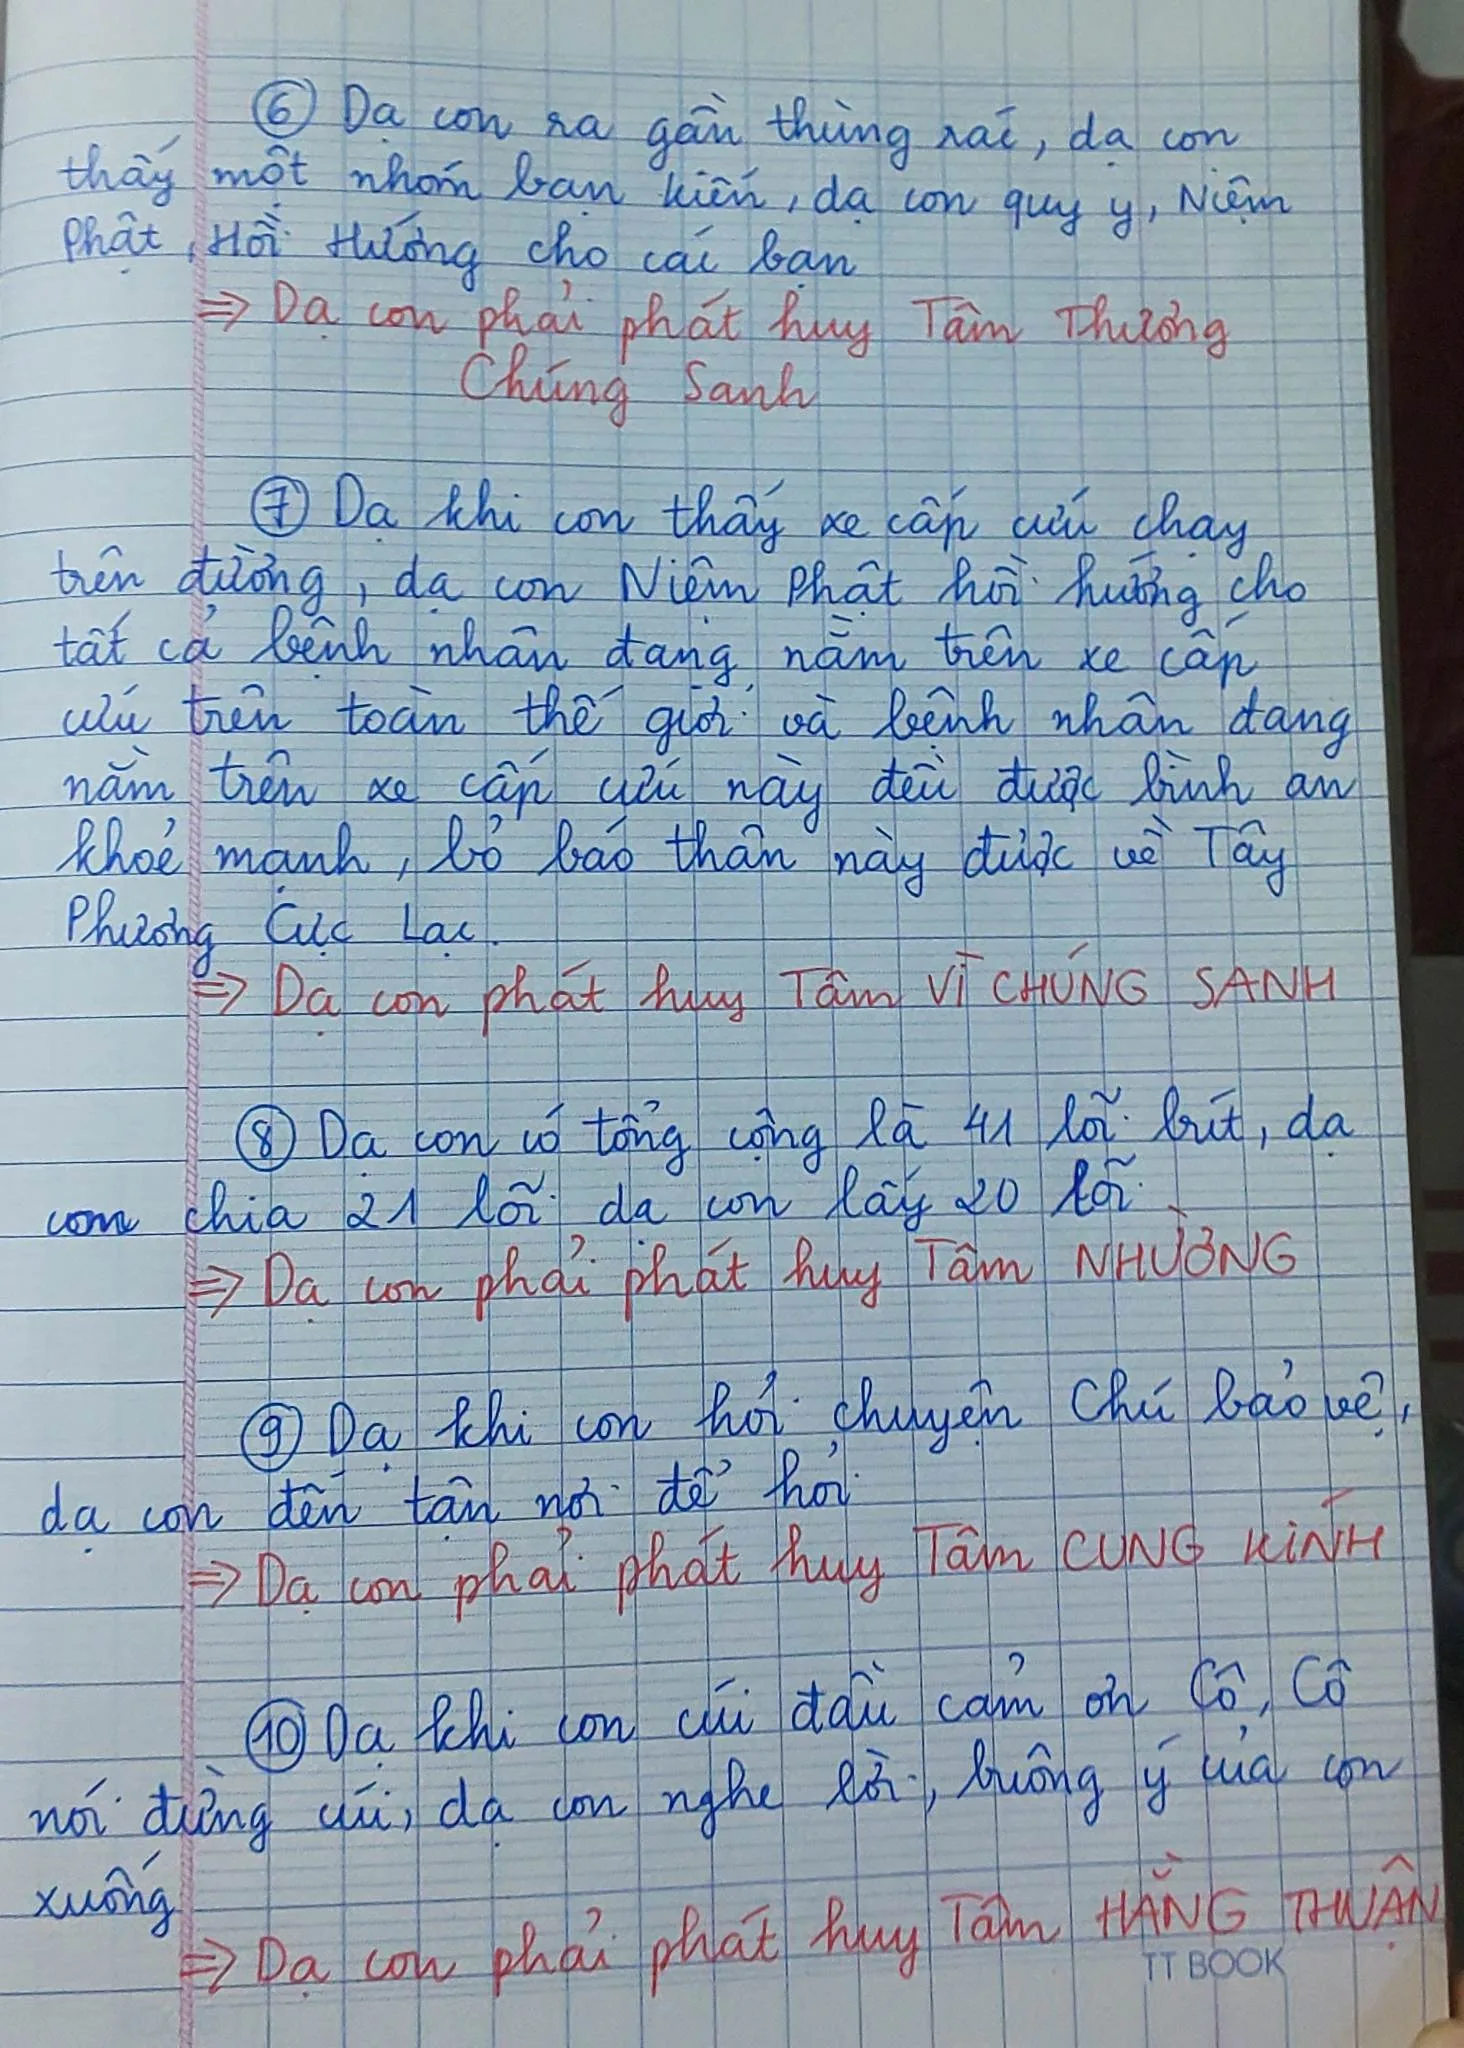 ⑥ Dạ con ra gần thùng rác, dạ con
thấy một nhóm bạn kiến, dạ con quy y, Niệm
Phật, Hồi Hướng cho các bạn
=> Dạ con phải phát huy Tâm Thương
Chúng Sanh
⑦ Dạ khi con thấy xe cấp cứu chạy
trên đường, dạ con Niệm Phật hồi hướng cho
tất cả bệnh nhân đang nằm trên xe cấp
cứu trên toàn thế giới và bệnh nhân đang
nằm trên xe cấp cứu này đều được bình an
khoẻ mạnh, bỏ báo thân này được về Tây
Phương Cực Lạc.
=> Dạ con phát huy Tâm VÌ CHÚNG SANH
⑧ Dạ con có tổng cộng là 41 lõi bút, dạ
con chia 21 lõi dạ con lấy 20 lõi
=> Dạ con phải phát huy Tâm NHƯỜNG
⑨ Dạ khi con hỏi chuyện Chú bảo vệ,
dạ con đến tận nơi để hỏi
=> Dạ con phải phát huy Tâm CUNG KÍNH
⑩ Dạ khi con cúi đầu cảm ơn Cô, Cô
nói đừng cúi, dạ con nghe lời, buông ý của con
xuống
=> Dạ con phải phát huy Tâm HẰNG THUẬN
TT BOOK